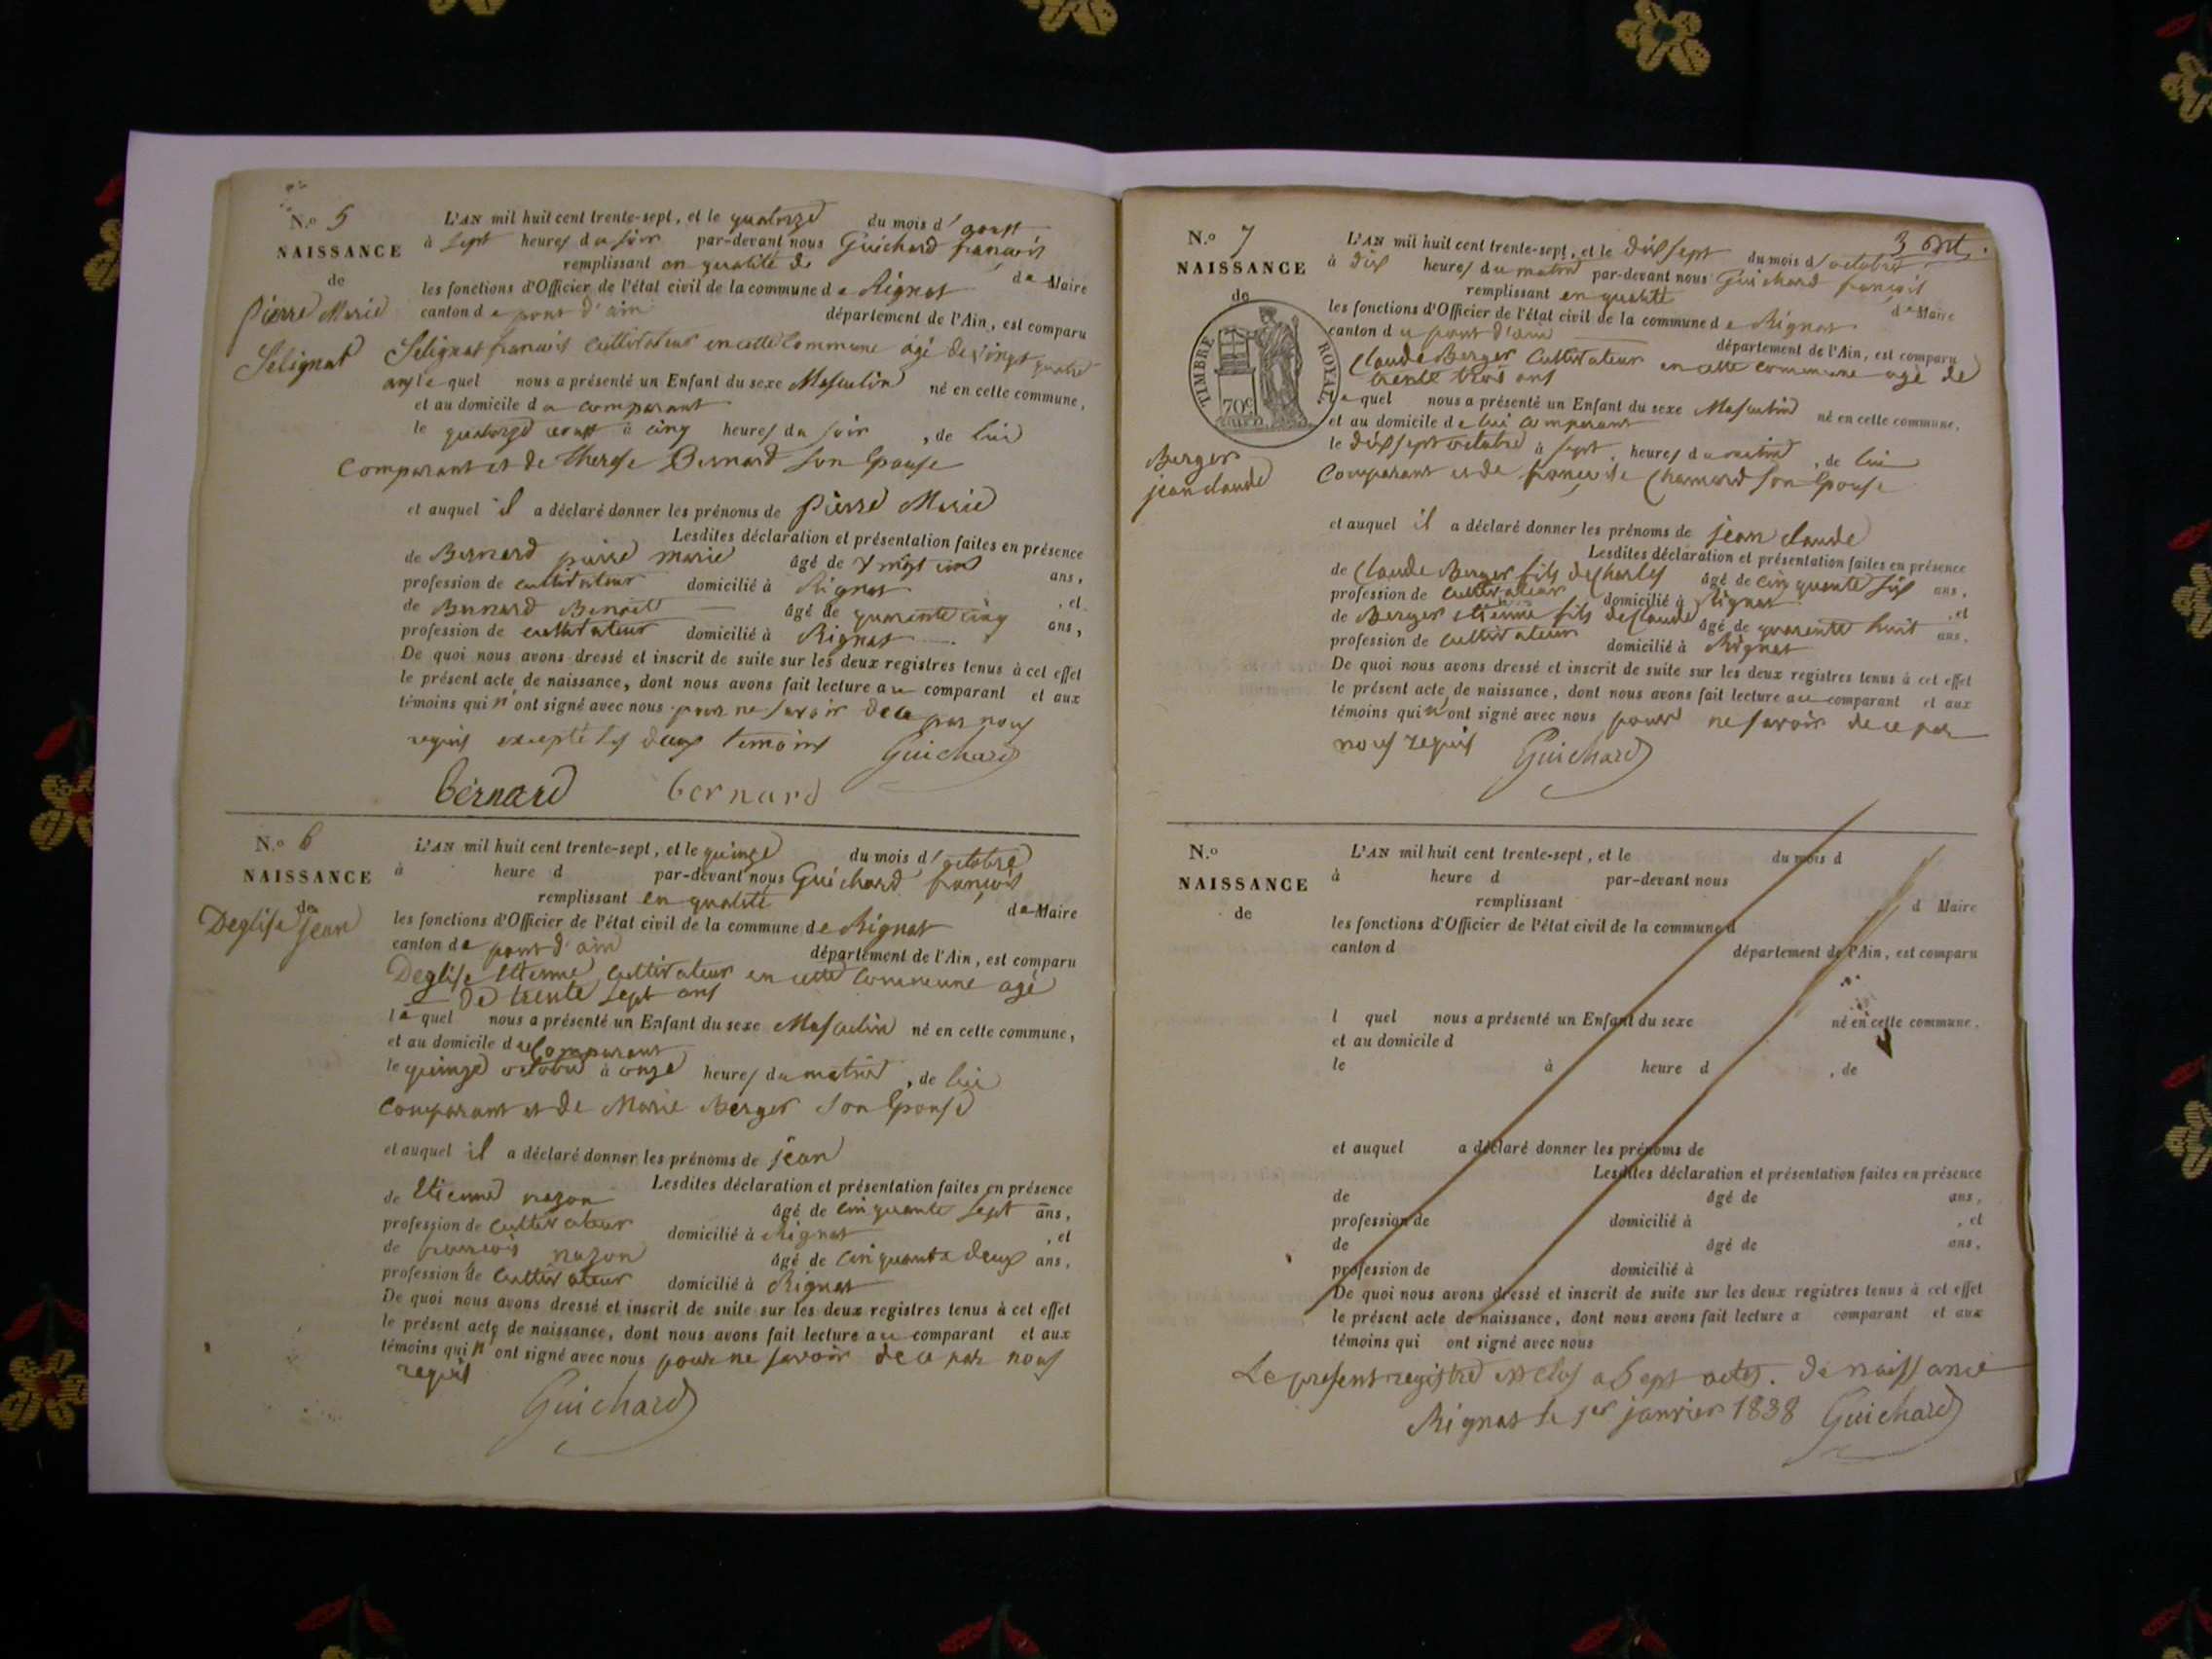 N.o 5
NAISSANCE
de
Pierre Marie
Selignat
L'AN mil huit cent trente-sept, et le quatorze du mois d'aoust
à sept heures du soir par-devant nous Guichard françois
remplissant en qualité de de Maire
les fonctions d'Officier de l'état civil de la commune de Rignat
canton de pont d'ain département de l'Ain, est comparu
Selignat francois Cultivateur en cette Commune agé de vingt quatre
ans lequel nous a présenté un Enfant du sexe Masculin né en cette commune,
et au domicile du comparant
le quatorze aoust à cinq heures du soir, de lui
Comparant et de therese Bernard son Epouse
et auquel il a déclaré donner les prénoms de Pierre Marie
Lesdites déclaration et présentation faites en présence
de Bernard pierre marie âgé de vingt ans,
profession de cultivateur domicilié à Rignat, et
de Bernard Benoit âgé de quarante cinq ans,
profession de cultivateur domicilié à Rignat
De quoi nous avons dressé et inscrit de suite sur les deux registres tenus à cet effet
le présent acte de naissance, dont nous avons fait lecture au comparant et aux
témoins qui n'ont signé avec nous pour ne savoir de ce par nous
requis excepté les deux temoins Guichard
bernard bernard
N.o 6
NAISSANCE
de
Deglise jean
L'AN mil huit cent trente-sept, et le quinze du mois d'octobre
à heure d par-devant nous Guichard françois
remplissant en qualité de Maire
les fonctions d'Officier de l'état civil de la commune de Rignat
canton de pont d'ain département de l'Ain, est comparu
Deglise Etienne Cultivateur en cette Commune agé
de trente sept ans
lequel nous a présenté un Enfant du sexe Masculin né en cette commune,
et au domicile du Comparant
le quinze octobre à onze heures du matin, de lui
Comparant et de Marie Berger son Epouse
et auquel il a déclaré donner les prénoms de jean
Lesdites déclaration et présentation faites en présence
de Etienne nazon âgé de cinquante sept ans,
profession de Cultivateur domicilié à Rignat, et
de francois nazon âgé de cinquante deux ans,
profession de Cultivateur domicilié à Rignat
De quoi nous avons dressé et inscrit de suite sur les deux registres tenus à cet effet
le présent acte de naissance, dont nous avons fait lecture au comparant et aux
témoins qui n'ont signé avec nous pour ne savoir de ce par nous
requis
Guichard
N.o 7
NAISSANCE
de
TIMBRE ROYAL
70c
Berger
jean claude
L'AN mil huit cent trente-sept, et le dix sept du mois d'octobre
à dix heures du matin par-devant nous Guichard françois
remplissant en qualité de Maire
les fonctions d'Officier de l'état civil de la commune de Rignat
canton du pont d'ain département de l'Ain, est comparu
Claude Berger Cultivateur en cette commune agé de
trente trois ans
lequel nous a présenté un Enfant du sexe Masculin né en cette commune,
et au domicile de lui comparant
le dix sept octobre à sept heures du matin, de lui
Comparant et de françoise Chanard son Epouse
et auquel il a déclaré donner les prénoms de jean claude
Lesdites déclaration et présentation faites en présence
de Claude Berger fils de Charles âgé de cinquante six ans,
profession de Cultivateur domicilié à Rignat, et
de Berger etienne fils de Claude âgé de quarente huit ans,
profession de Cultivateur domicilié à Rignat
De quoi nous avons dressé et inscrit de suite sur les deux registres tenus à cet effet
le présent acte de naissance, dont nous avons fait lecture au comparant et aux
témoins qui n'ont signé avec nous pour ne savoir de ce par
nous requis Guichard
N.o
NAISSANCE
de
L'AN mil huit cent trente-sept, et le du mois d
à heure d par-devant nous
remplissant d Maire
les fonctions d'Officier de l'état civil de la commune d
canton d département de l'Ain, est comparu
l quel nous a présenté un Enfant du sexe né en cette commune,
et au domicile d
le à heure d , de
et auquel a déclaré donner les prénoms de
Lesdites déclaration et présentation faites en présence
de âgé de ans,
profession de domicilié à , et
de âgé de ans,
profession de domicilié à
De quoi nous avons dressé et inscrit de suite sur les deux registres tenus à cet effet
le présent acte de naissance, dont nous avons fait lecture a comparant et aux
témoins qui ont signé avec nous
Le present registre est clos a Sept actes. de naissance
Rignat le 1er janvier 1838 Guichard